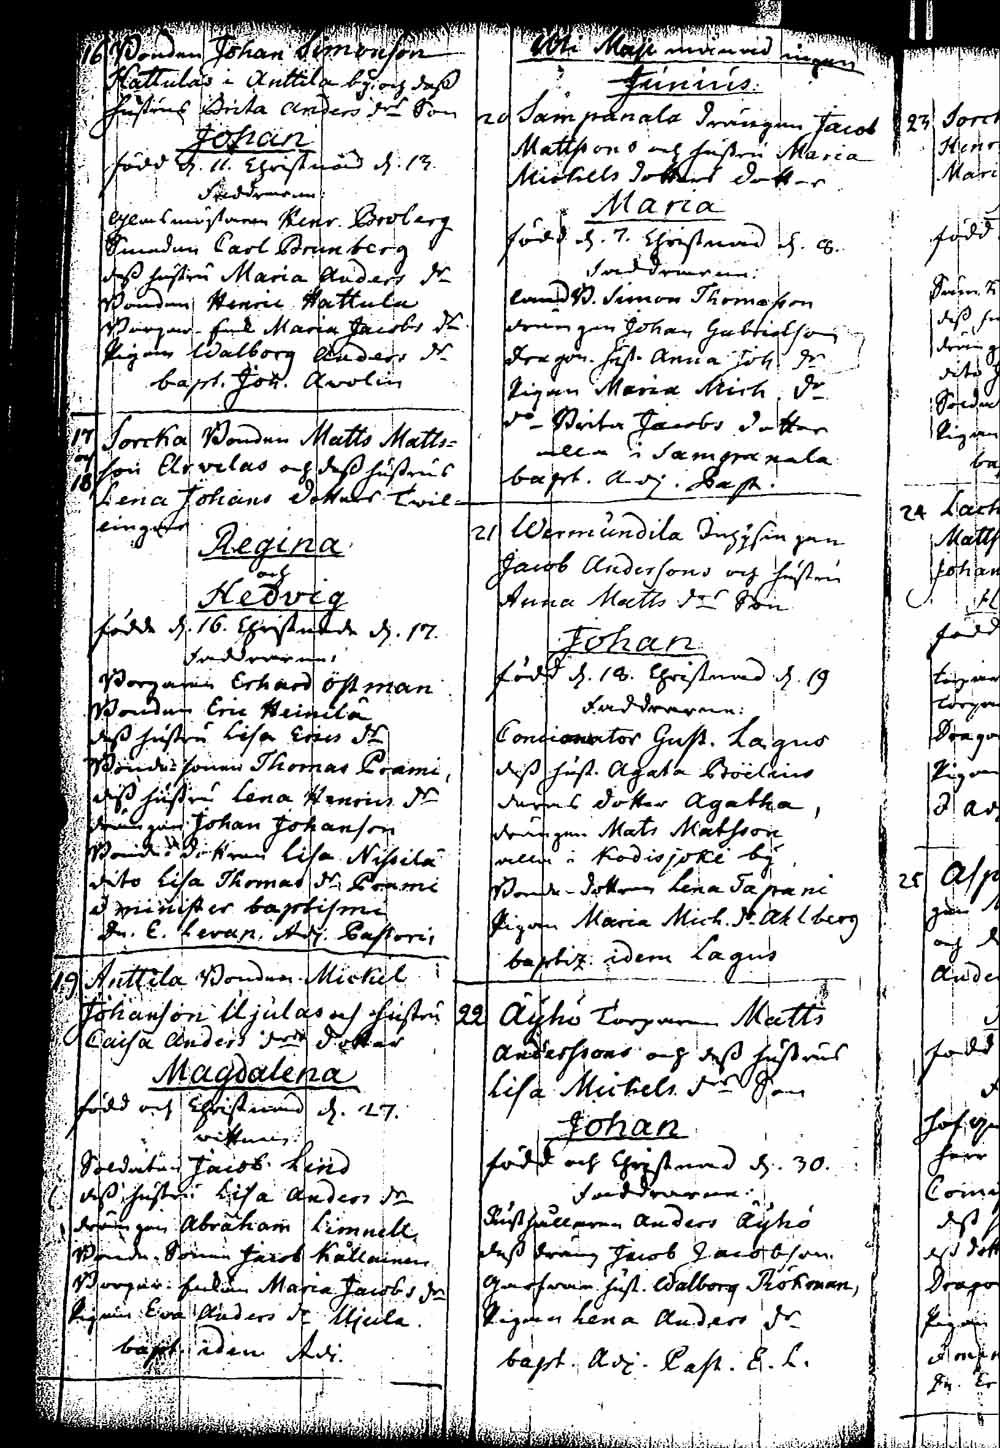 16 Bonden Johan Simonson
Hattulas i Anttila by och dess
hustrus Brita Anders drs Son
Johan
född d. 11. Christnad d. 13.
Faddrarne:
Henr. Broberg
Smeden Carl Brunberg
dess hustru Maria Anders dr
Bonden Henric Hattula
Borgar- Maria Jacobs dr
Pigan Walborg Anders dr
bapt. Joh. Avolin
17 och 18 Torcka Bonden Matts Matts-
son Arvelas och dess hustrus
Lena Johans dotters Twil-
lingar
Regina
och
Hedvig
födde d. 16. Christnade d. 17.
Faddrarne:
Borgaren Erhard Östman
Bonden Eric Heinilä
dess hustru Lisa Erics dr
Bonde-sonen Thomas Prami,
dess hustru Lena Henrics dr
drängen Johan Johanson
Bonde dottren Lisa Nissilä
dito Lisa Thomas dr Prami
administer baptismi
Dn. E. Levan. Adj. Pastoris
19 Anttila Bonden Mickel
Johanson Ujulas och hustru
Caisa Anders drs dotter
Magdalena
född och Christnad d. 27.
wittnen:
Soldaten Jacob Lind
dess hustru Lisa Anders dr
drängen Abraham Limnell,
Bonde-Sonen Jacob Kållainen
Borgar- Maria Jacobs dr
Pigan Eva Anders dr Ujula.
bapt. idem Adj.
Uti Maji ingen
Junius.
20 Sampanala Drängen Jacob
Mattsons och hustru Maria
Michels dotters dotter
Maria
född d. 7. Christnad d. 8.
Faddrarne:
Simon Thomasson
drängen Johan Gabrielson
Dragon. hust. Anna Joh. dr
Pigan Maria Mich. dr
do Brita Jacobs dotter
alla i Sampanala
bapt. Adj. Past.
21 Wermundila Inhysingen
Jacob Anderssons och hustru
Anna Matts drs Son
Johan
född d. 18. Christnad d. 19
Faddrarne:
Concionator Gust. Lagus
dess hust. Agata Böëlius
deras dotter Agatha,
drängen Mats Matsson
alla i Kodisjoki by,
Bonde-dottren Lena Tapani
Pigan Maria Mich. dr Ahlberg
baptiz. idem Lagus
22 Äyhö Torparen Matts
Anderssons och dess hustrus
Lisa Michels drs Son
Johan
född och Christnad d. 30.
Faddrarne:
Rusthållaren Anders Äyhö
dess dräng Jacob Jacobson
hust. Walborg Frökman,
Pigan Lena Anders dr
bapt. Adj. Past. E. L.
23 Torck
Henr
Mari
född
dess
dräng
dito
Soldat
Pigan
24
Matts
Johan
född
Torpar
Dragon
Pigan
25
och d
Ande
född
dess
Dragon
Pigan